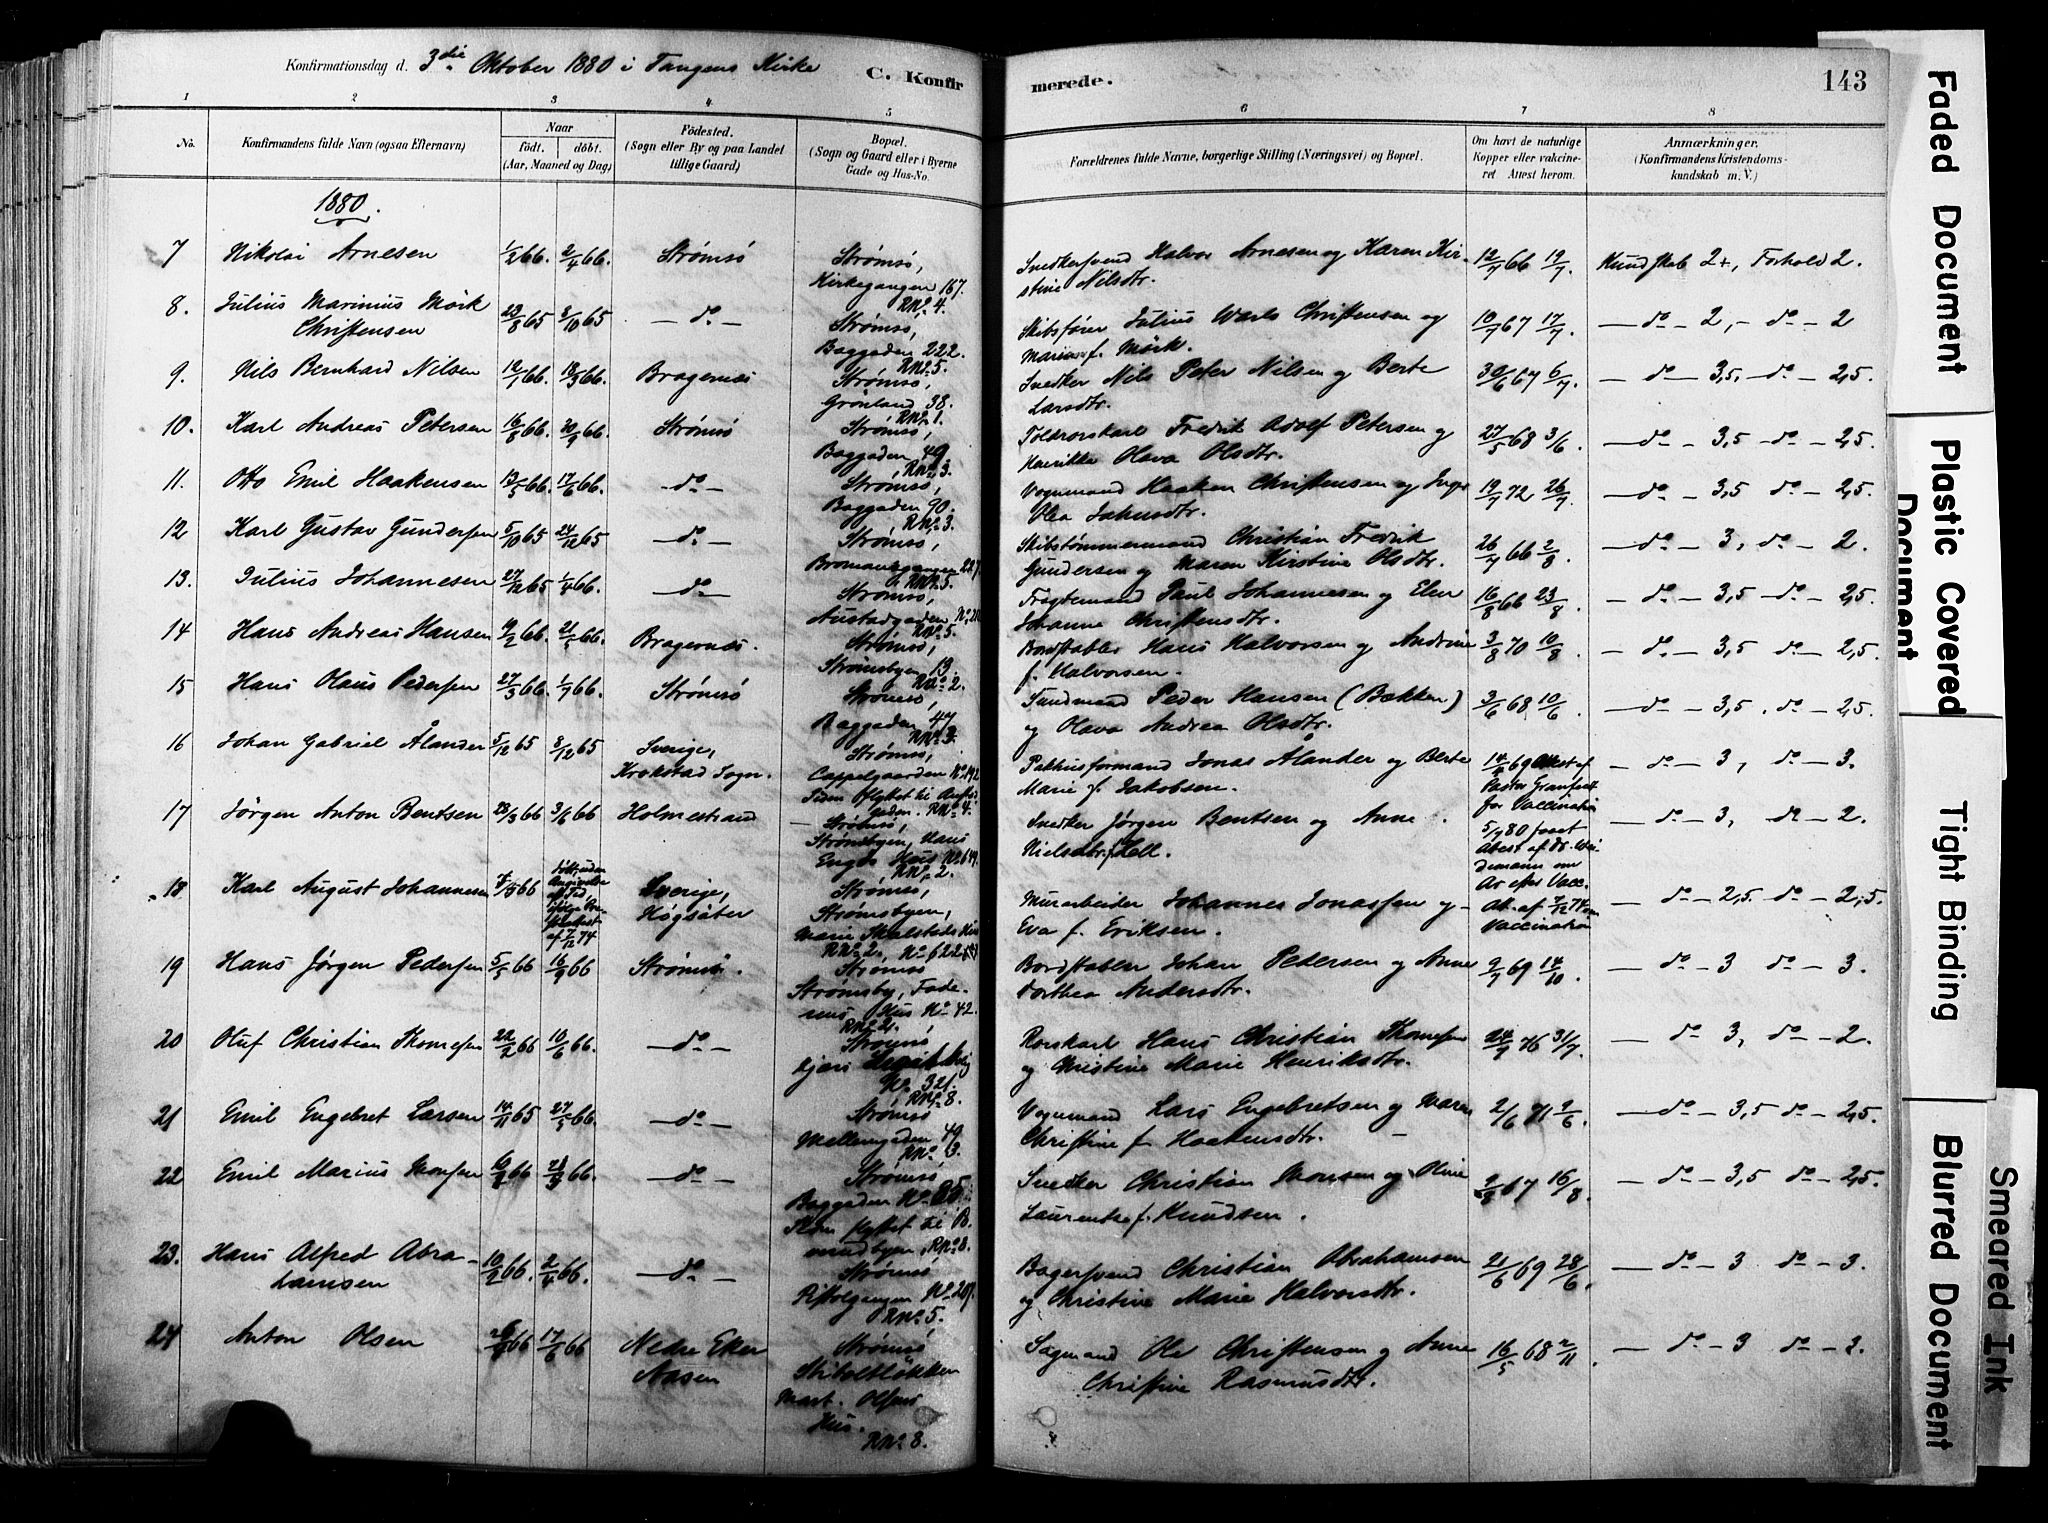 Konfirmationsdag d. 3die Oktober 1880 i Tangens Kirke
C. Konfirmerede.
143
1 2 3 4 5 6 7 8
No.
Konfirmandens fulde Navn (ogsaa Efternavn)
Naar
födt. döbt.
(Aar, Maaned og Dag)
Födested.
(Sogn eller By og paa Landet
tillige Gaard)
Bopæl.
(Sogn og Gaard eller i Byerne
Gade og Hus-No.
Forældrenes fulde Navne, borgerlige Stilling (Næringsvei) og Bopæl.
Om havt de naturlige
Kopper eller vakcine-
ret Attest herom.
Anmærkninger.
(Konfirmandens Kristendoms-
kundskab m. V.)
1880.
7 Nikolai Arnesen 1/2 66. 2/4 66. Strømsö
Strømsö,
Kirkegangen 167.
RNo. 4.
Snedkersvend Halvor Arnesen og Karen Kir-
stine Nilsdtr.
12/7 66 19/7. Kundskab 2+, Forhold 2.
8. Julius Marinius Mörk
Christensen
23/8 65 3/10 65 — do —
Strømsö,
Baggaden 222.
RNo. 5.
Skibsfører Julius Christensen og
f. Mörk.
10/7 67 17/7. — do — 2, — do — 2
9. Nils Bernhard Nilsen 66. 66. Bragernæs
Strømsö,
Grönland 38.
RNo. 1.
Snedker Nils Peter Nilsen og Berte
Larsdtr.
30/6 67 6/7. — do — 3,5. — do — 2,5.
10. Karl Andreas Petersen 16/8 66. 30/9 66. Strømsö
Strømsö,
Baggaden 49.
RNo. 3.
Toldrorskarl Fredrik Adolf Petersen og
Henrikke Olava Olsdtr.
27/5 68 3/6. — do — 3,5 — do — 2,5.
11. Otto Emil Haakensen 13/5 66. 17/6 66. — do —
Strømsö,
Baggaden 90.
RNo. 3.
Vognmand Haaken Christensen og Inger
Olea
19/7 72 26/7 — do — 3,5 do — 2,5.
12 Karl Gustav Gundersen 5/10 65 24/12 65 — do —
Strømsö,
RNo. 5.
Skibstømmermand Christian Fredrik
Gundersen og Maren Kirstine Olsdtr.
26/7 66 2/8 — do — 3, do — 2.
13. Julius Johannesen 27/12 65 1/4 66. — do —
Strømsö,
Austadgaden
RNo. 5.
Fragtemand Paul Johannesen og Elen
Johanne Christensdtr.
16/8 66 23/8. — do — 3,5 do — 2,5.
14 Hans Andreas Hansen 66. 21/5 66. Bragernæs.
Strømsö,
Strømsbyen 13.
RNo. 2.
Bordstabler Hans Halvorsen og Andrine
f. Halvorsen.
3/8 70 10/8 — do — 3,5 do — 2,5.
15 Hans Olaus Pedersen 27/3 66. 1/7 66. Strømsö
Strømsö,
Baggaden 47
RNo. 3.
Sundmand Peder Hansen (Bækken)
og Olava Andrea Olsdtr.
3/6 68 10/6. — do — 3,5. do — 2,5.
16 Johan Gabriel Ålander 5/12 65 65 Sverige,
Krokstad Sogn.
Strømsö,
Cappelgaarden
Siden flyttet til
RNo. 4.
Pakhusformand Jonas Ålander og Berte
Marie f. Jakobsen.
69 Attest af
Pastor
for Vaccination
— do — 3, do — 3.
17 Jörgen Anton Bentsen 28/3 66 66 Holmestrand
— Strømsö,
Strømsbyen, Hans
Engös Hus No 649.
RNo. 2.
Snedker Jörgen Bentsen og Anne
Nielsdtr.
80
Attest af Dr.
om
Ar efter Vacc.
— do — 3, do — 2.
18 Karl August Johannesen 66
Sverige,
Högsäter
Strømsö,
Strømsbyen,
RNo. 2., No 622
Murarbeider Johannes Jonassen og
Eva f. Eriksen.
Vaccination
— do — 2,5. do — 2,5.
19 Hans Jörgen Pedersen 5/5 66 16/9 66 Strømsö.
Strømsö
Strømsby,
Hus No 42.
RNo 2.
Bordstabler Johan Pedersen og Anne
Dorthea Andersdtr.
69 14/10. — do — 3 do — 3.
20 Oluf Christian Thomesen 22/2 66 10/6 66. — do —
Strømsö
No. 321.
RNo. 8.
Rorskarl Hans Christian Thomesen
og Christine Marie Henriksdtr.
24/7 76 31/7 — do 3, do — 2.
21 Emil Engebret Larsen 14/11 65 27/5 66 — do —
Strømsö
Mellemgaden 49
RNo. 3.
Vognmand Lars Engebretsen og Maren
Christine f. Haakensdtr.
2/6 71 9/6. — do — 3,5 do — 2,5.
22 Emil Marius Monsen 66 66. — do —
Strømsö
Baggaden No 25
flyttet til
RNo 8.
Snedker Christian Monsen og Oline
Laurentse f. Knudsen.
67 16/8. — do — 3,5 do — 2,5.
23. Hans Alfred Abra-
hamsen
10/2 66. 2/4 66. — do —
Strømsö
Pistolgangen No 207.
RNo. 5.
Bagersvend Christian Abrahamsen
og Christine Marie Halvorsdtr.
21/6 69 28/6. — do — 3 do — 3.
24 Anton Olsen 66 17/6 66 Nedre Eker
Aasen
Strømsö
Stiboltlökken
Mart. Olsens
Hus.
RNo. 8.
Sagmand Ole Christensen og Anne
Christine Rasmusdtr.
16/5 68 2/11. — do — 3 do — 2.
Faded Document
Plastic Covered Document
Tight Binding
Blurred Document
Smeared Ink